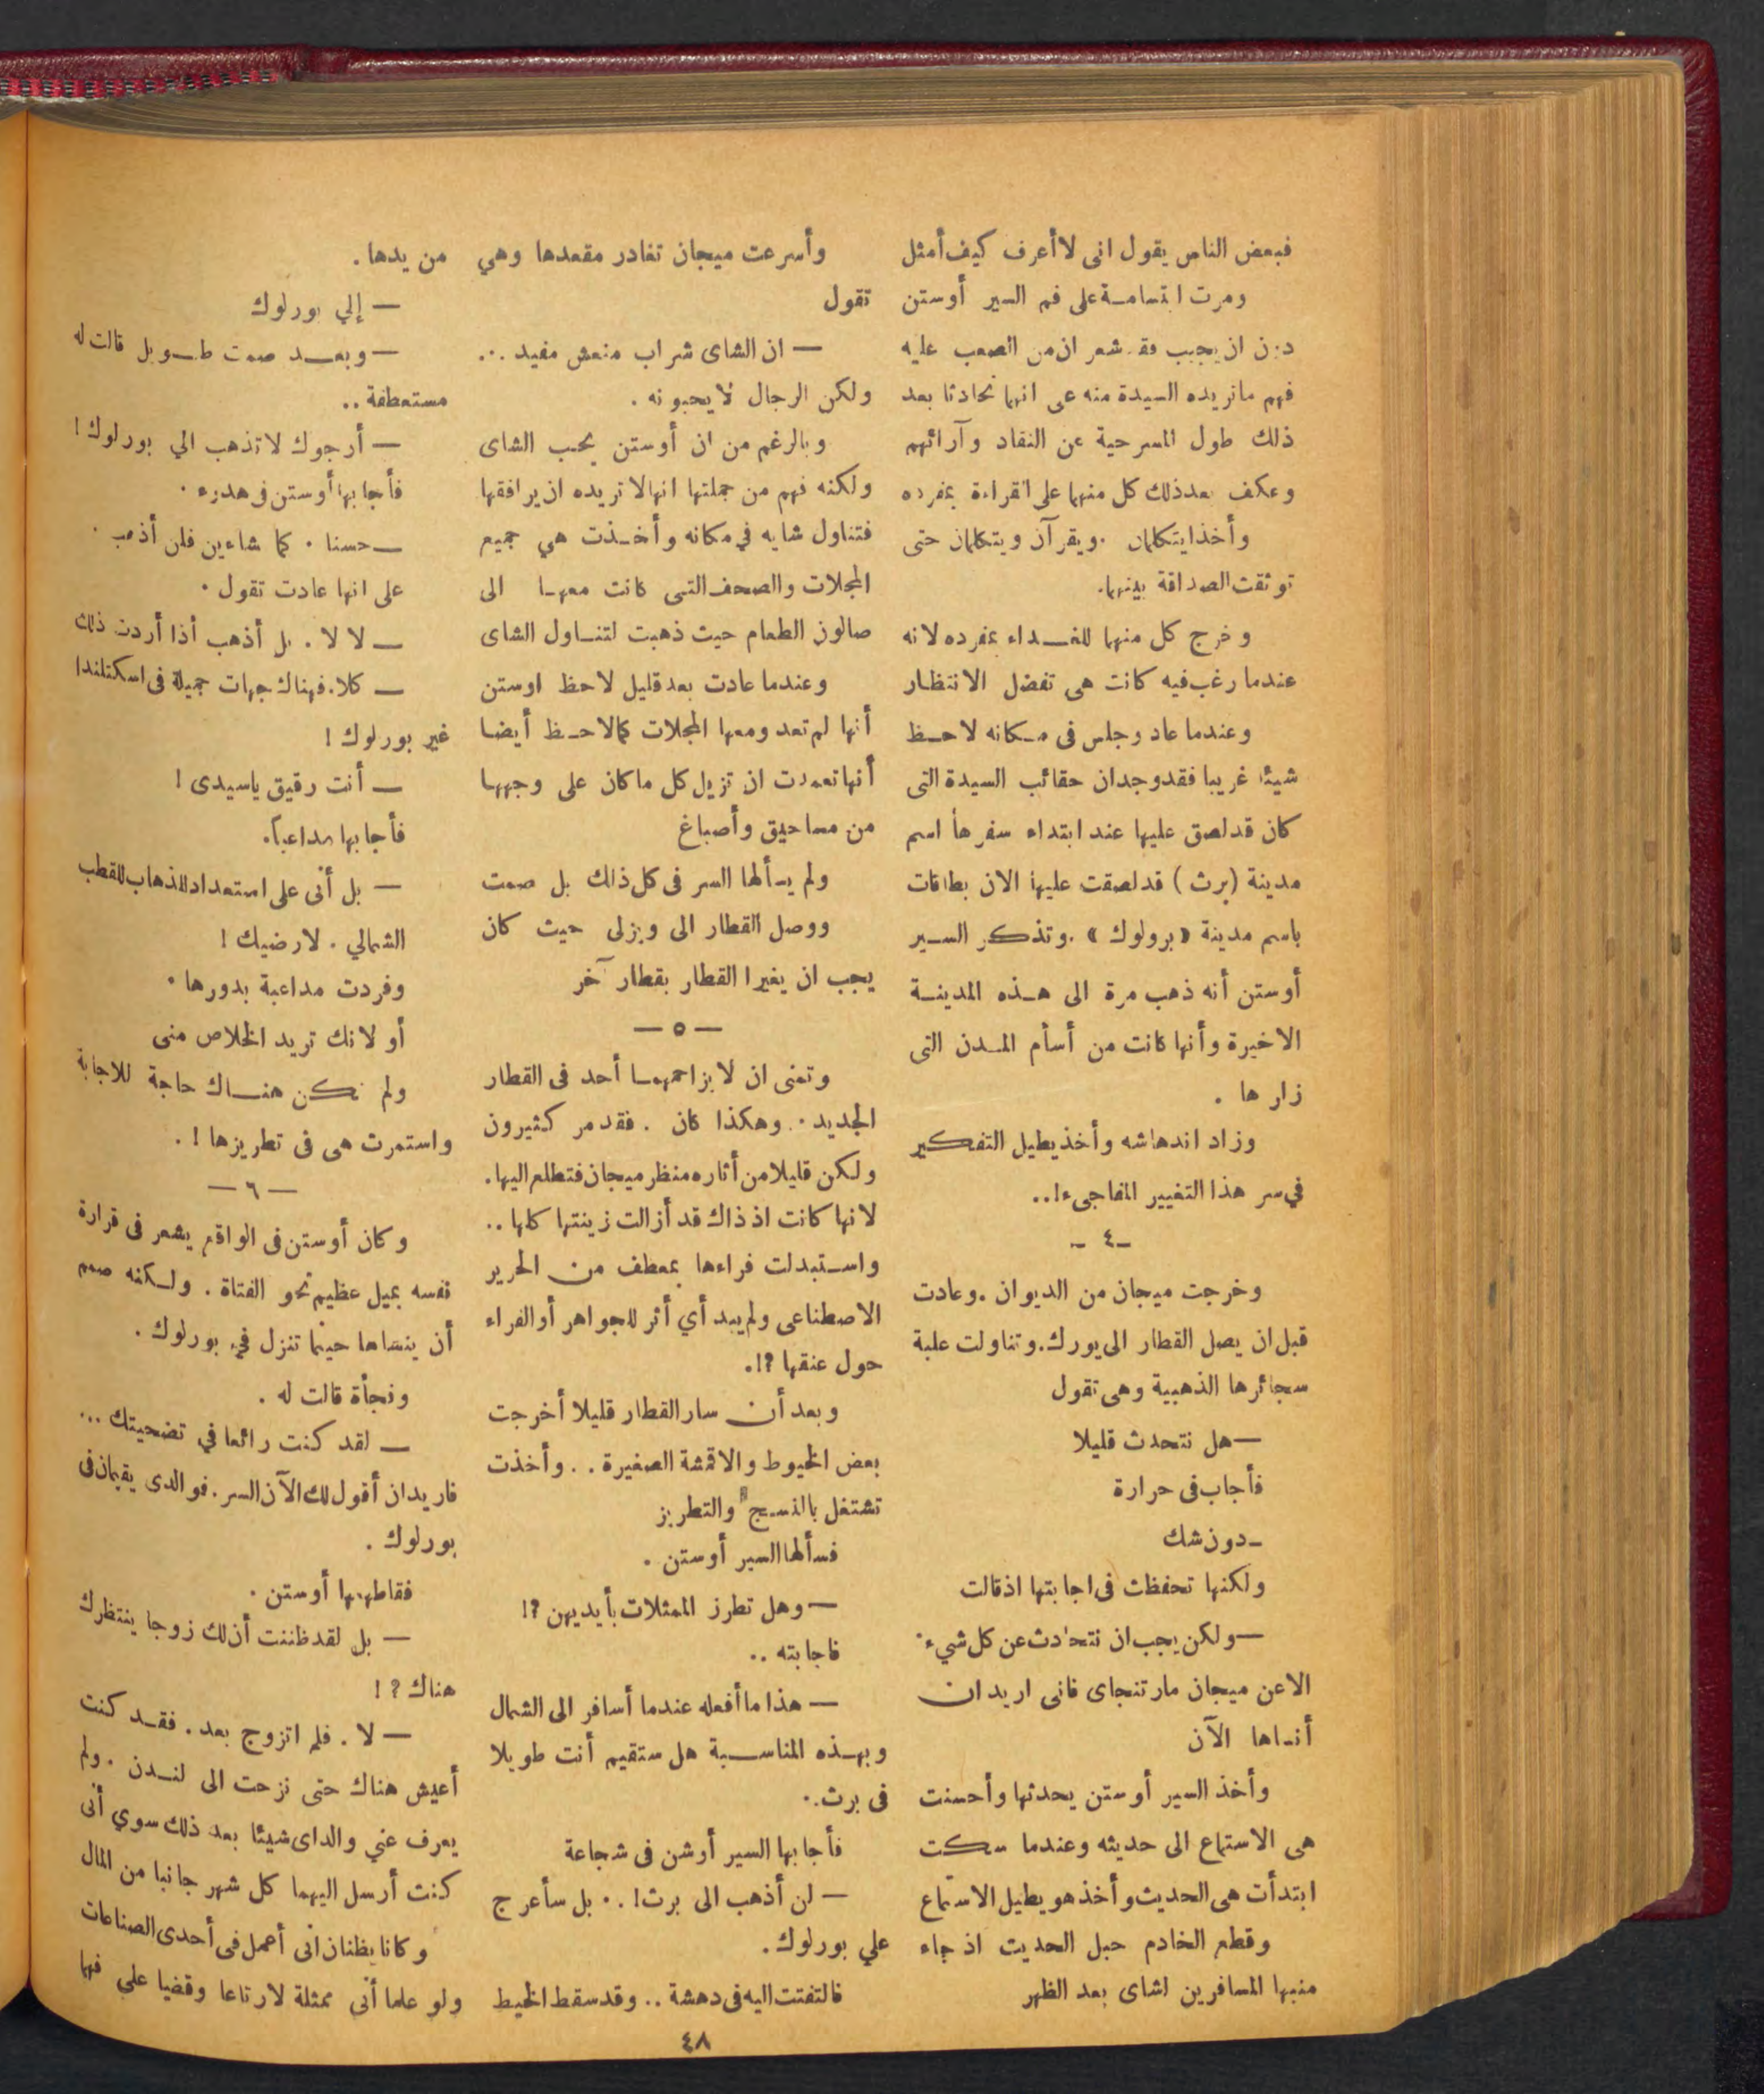 فبعض الناس يقول انى لا أعرف كيف أمثل
ومرت ابتسامة على فم السير أوستن
دون ان يجيب فقد شعر ان من الصعب عليه
فهم ماتريده السيدة منه على انهما تحادثا بعد
ذلك طول المسرحية عن النقاد وآرائهم
وعكف بعد ذلك كل منهما على القراءة بمفرده
وأخذا يتكلمان . ويقرآن ويتكلمان حتى
توثقت الصداقة بينهما.
وخرج كل منهما للغـــداء بمفرده لانه
عندما رغب فيه كانت هى تفضل الانتظار
وعندما عاد وجلس فى مـكانه لاحـظ
شيئا غريبا فقد وجد ان حقائب السيدة التى
كان قد لصق عليها عند ابتداء سفرها اسم
مدينة (برث) قد لصقت عليها الان بطاقات
باسم مدينة « برولوك » . وتذكر السـير
أوستن أنه ذهب مرة الى هـذه المدينـة
الاخيرة وأنها كانت من أسأم المـدن التى
زارها .
وزاد اندهاشه وأخذ يطيل التفكير
في سر هذا التغيير المفاجىء!..
ـ ٤ ـ
وخرجت ميجان من الديوان . وعادت
قبل ان يصل القطار الى يورك. وتناولت علبة
سجائرها الذهبية وهى تقول
— هل نتحدث قليلا
فأجاب فى حرارة
ـ دون شك
ولكنها تحفظت فى اجابتها اذ قالت
— ولكن يجب ان نتحادث عن كل شيء
الا عن ميجان مارتنجاى فانى اريد ان
أنساها الآن
وأخذ السير أوستن يحدثها وأحسنت
هى الاستماع الى حديثه وعندما سكت
ابتدأت هى الحديث وأخذ هو يطيل الاستماع
وقطع الخادم حبل الحديث اذ جاء
منبها المسافرين لشاى بعد الظهر
وأسرعت ميجان تغادر مقعدها وهي
تقول
— ان الشاى شراب منعش مفيد ...
ولكن الرجال لايحبونه .
وبالرغم من ان أوستن يحب الشاى
ولكنه فهم من جملتها انها لا تريده ان يرافقها
فتناول شايه في مكانه وأخـذت هي جميع
المجلات والصحف التى كانت معهـا الى
صالون الطعام حيث ذهبت لتنـاول الشاى
وعندما عادت بعد قليل لاحظ اوستن
أنها لم تعد ومعها المجلات كما لاحـظ أيضا
أنها تعمدت ان تزيل كل ما كان على وجهـها
من مساحيق وأصباغ
ولم يسألها السر فى كل ذلك بل صمت
ووصل القطار الى ويزلى حيث كان
يجب ان يغيرا القطار بقطار آخر
— ٥ —
وتمنى ان لا يزاحمهمـا أحد فى القطار
الجديد . وهكذا كان . فقد مر كثيرون
ولكن قليلا من أثاره منظر ميجان فتطلع اليها.
لانها كانت اذ ذاك قد أزالت زينتها كلها ..
واسـتبدلت فراءها بمعطف من الحرير
الاصطناعى ولم يبد أي أثر للجواهر أو الفراء
حول عنقها ؟!.
وبعد أن سار القطار قليلا أخرجت
بعض الخيوط والاقمشة الصغيرة . . وأخذت
تشتغل بالنسـج والتطريز
فسألها السير أوستن .
— وهل تطرز الممثلات بأيديهن ؟!
فاجابته ..
— هذا ما أفعله عندما أسافر الى الشمال
وبهـذه المناسـبة هل ستقيم أنت طويلا
فى برث..
فأجابها السير أرشن فى شجاعة
— لن أذهب الى برث! .. بل سأعرج
علي بورلوك.
فالتفتت اليه فى دهشة .. وقد سقط الخيط
من يدها .
— إلي بورلوك
— وبعـد صمت طـويل قالت له
مستعطفة ..
— أرجوك لا تذهب الي بورلوك !
فأجابها أوستن فى هدوء .
— حسنا . كما شاءين فلن أذهب .
على انها عادت تقول .
— لا لا . بل أذهب أذا أردت ذلك
— كلا. فهناك جهات جميلة فى اسكتلندا
غير بورلوك !
— أنت رقيق ياسيدى !
فأجابها مداعباً.
— بل أنى على استعداد للذهاب للقطب
الشمالي . لارضيك !
وفردت مداعبة بدورها .
أو لانك تريد الخلاص منى
ولم تكن هنـاك حاجة للاجابة
واستمرت هى فى تطريزها ! .
— ٦ —
وكان أوستن فى الواقع يشعر فى قرارة
نفسه بميل عظيم نحو الفتاة . ولـكنه صمم
أن ينساها حينما تنزل في بورلوك .
وفجأة قالت له .
— لقد كنت رائعا في تضحيتك ...
فاريد ان أقول لك الآن السر . فوالدى يقيمان فى
بورلوك .
فقاطعها أوستن .
— بل لقد ظننت أن لك زوجا ينتظرك
هناك ؟ !
— لا . فلم اتزوج بعد . فقـد كنت
أعيش هناك حتى نزحت الى لنـدن . ولم
يعرف عني والداى شيئا بعد ذلك سوي أنى
كنت أرسل اليهما كل شهر جانبا من المال
وكانا يظنان انى أعمل فى أحدى الصناعات
ولو علما أنى ممثلة لارتاعا وقضيا علي فهما
٤٨